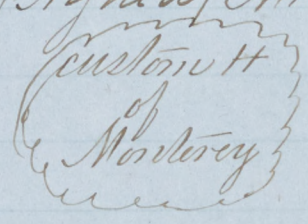 Custom H
of
Monterey